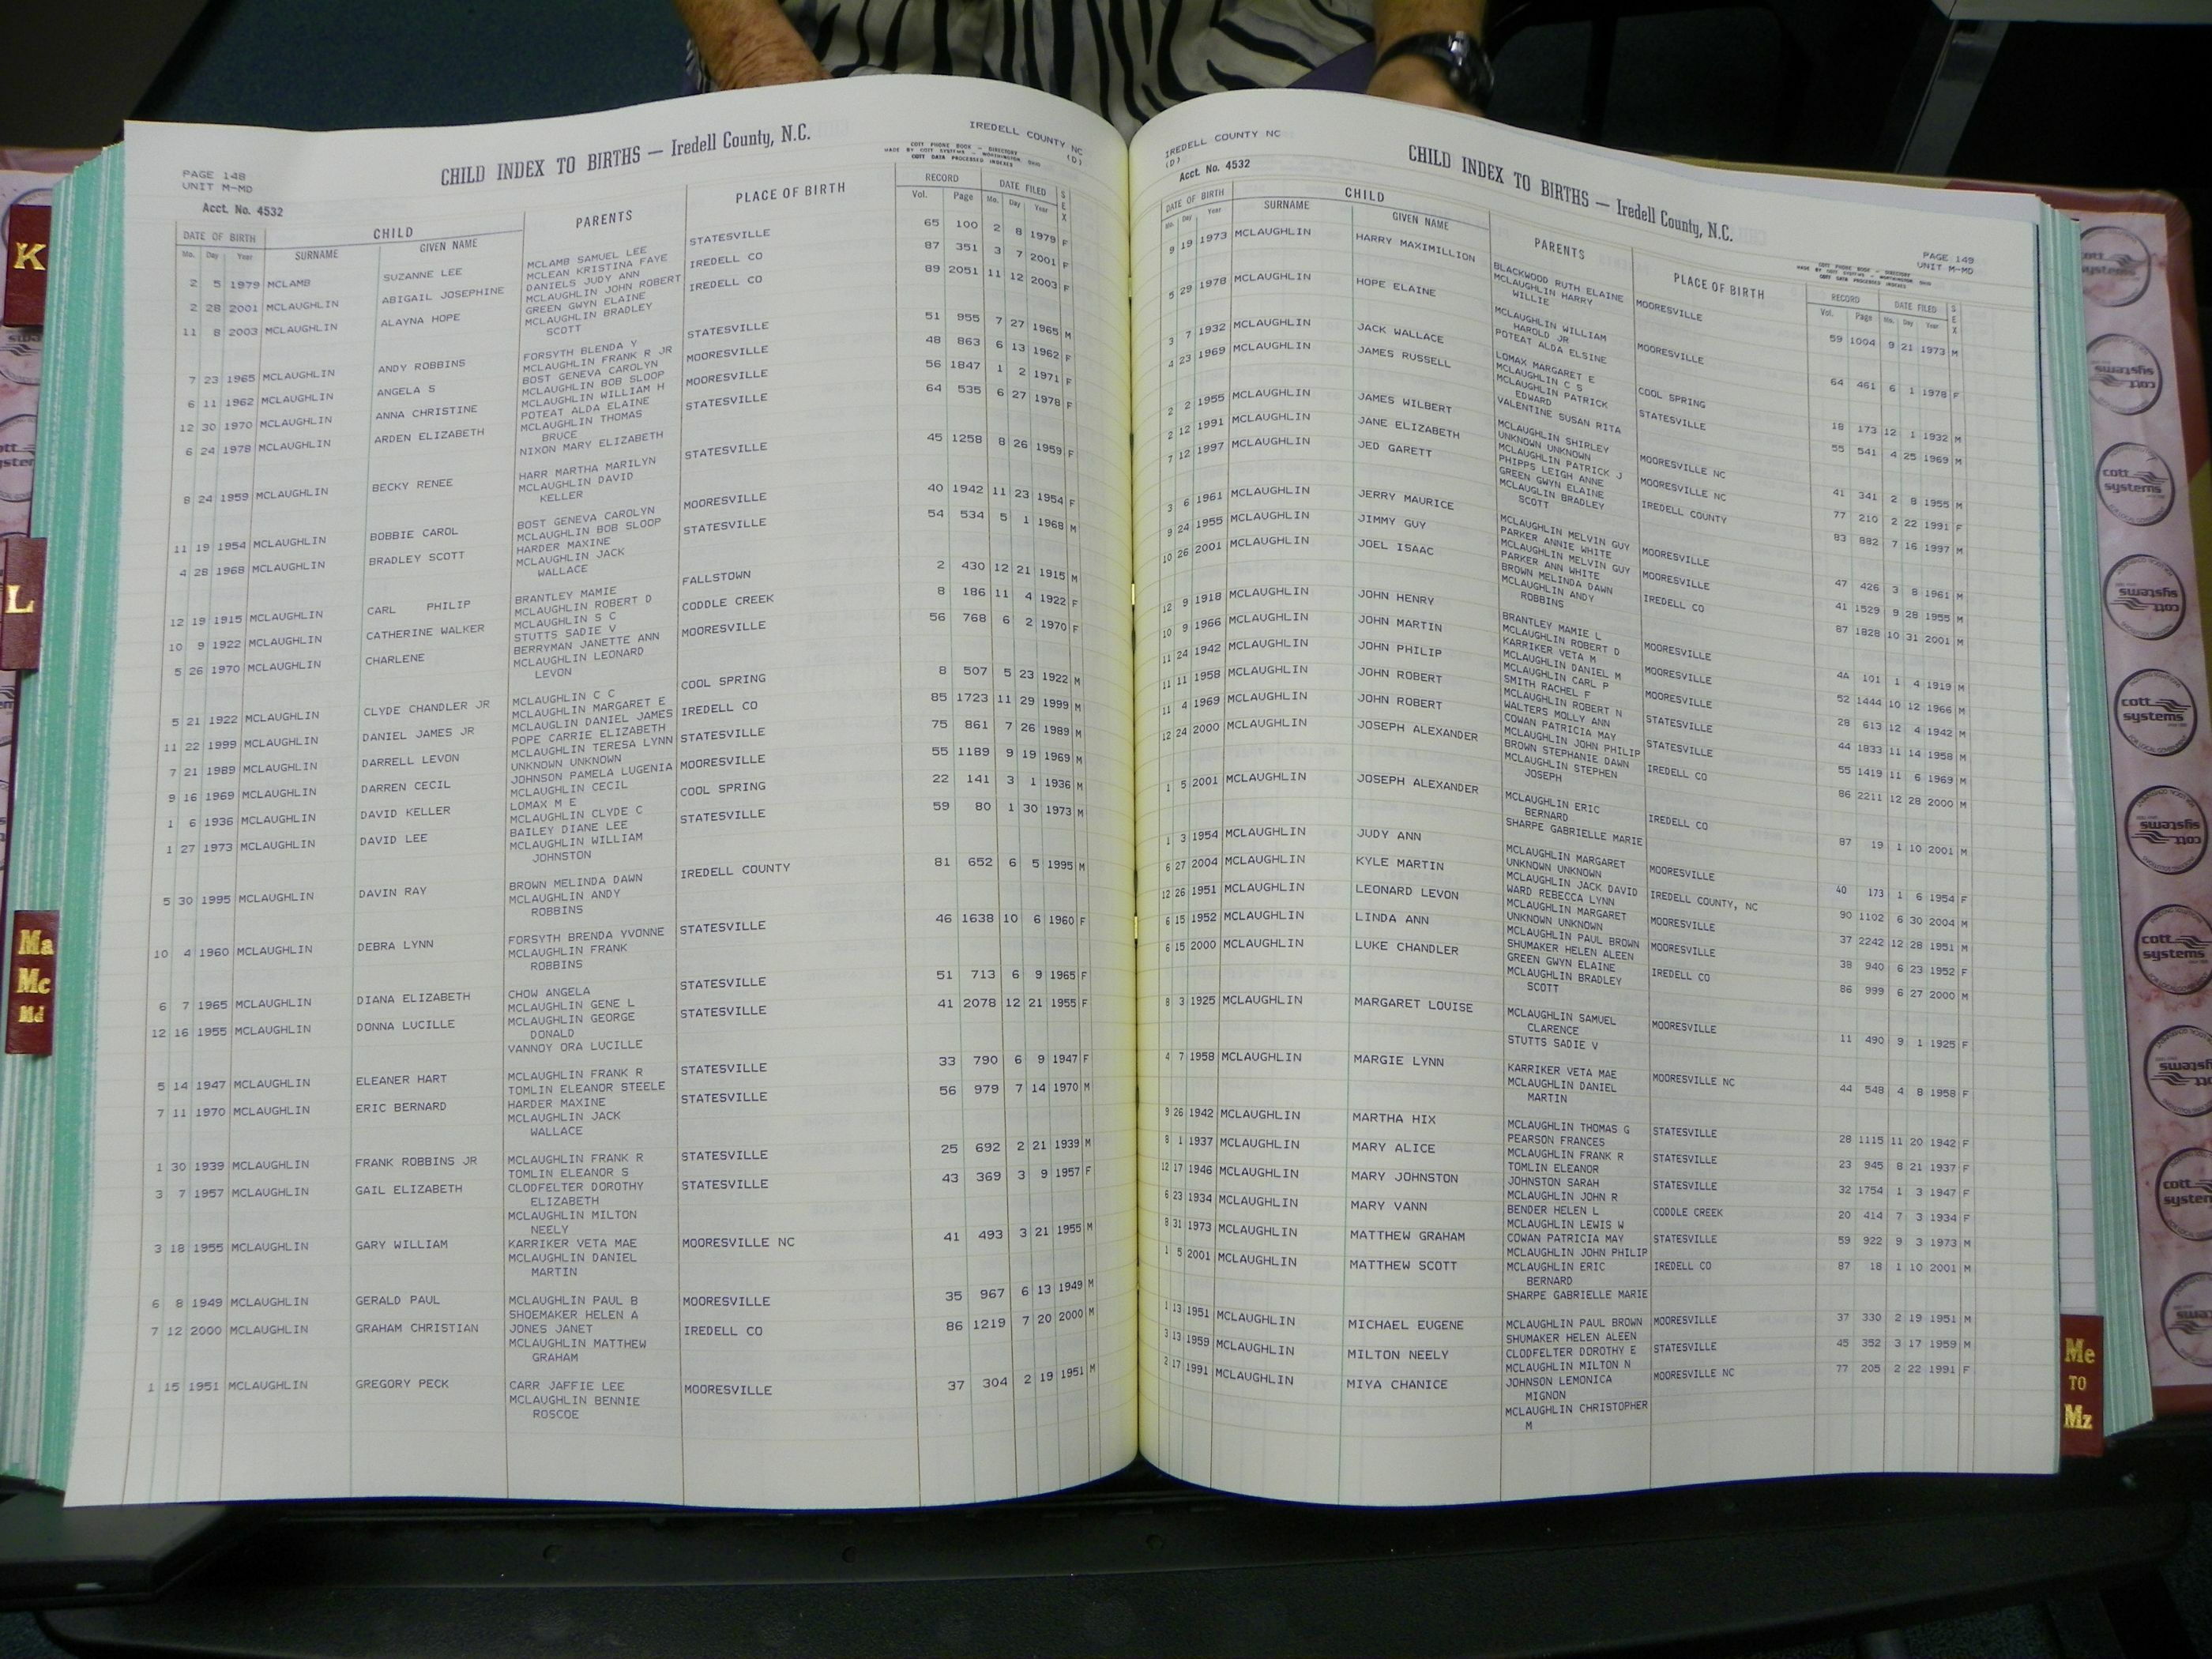 K
L
Ma
Mc
Md
IREDELL COUNTY NC
(D)
PAGE 148
UNIT M-MD
CHILD INDEX TO BIRTHS — Iredell County, N.C.
COTT PHONE BOOK - DIRECTORY
MADE BY COTT SYSTEMS - WORTHINGTON, OHIO
COTT DATA PROCESSED INDEXES
Acct. No. 4532
DATE OF BIRTH CHILD PARENTS PLACE OF BIRTH RECORD DATE FILED SEX
Mo. Day Year SURNAME GIVEN NAME Vol. Page Mo. Day Year
2 5 1979 MCLAMB SUZANNE LEE MCLAMB SAMUEL LEE STATESVILLE 65 100 2 8 1979 F
MCLEAN KRISTINA FAYE
2 28 2001 MCLAUGHLIN ABIGAIL JOSEPHINE DANIELS JUDY ANN IREDELL CO 87 351 3 7 2001 F
MCLAUGHLIN JOHN ROBERT
11 8 2003 MCLAUGHLIN ALAYNA HOPE GREEN GWYN ELAINE IREDELL CO 89 2051 11 12 2003 F
MCLAUGHLIN BRADLEY
SCOTT
7 23 1965 MCLAUGHLIN ANDY ROBBINS FORSYTH BLENDA Y STATESVILLE 51 955 7 27 1965 M
MCLAUGHLIN FRANK R JR
6 11 1962 MCLAUGHLIN ANGELA S BOST GENEVA CAROLYN MOORESVILLE 48 863 6 13 1962 F
MCLAUGHLIN BOB SLOOP
12 30 1970 MCLAUGHLIN ANNA CHRISTINE MCLAUGHLIN WILLIAM H MOORESVILLE 56 1847 1 2 1971 F
POTEAT ALDA ELAINE
6 24 1978 MCLAUGHLIN ARDEN ELIZABETH MCLAUGHLIN THOMAS STATESVILLE 64 535 6 27 1978 F
BRUCE
NIXON MARY ELIZABETH
8 24 1959 MCLAUGHLIN BECKY RENEE HARR MARTHA MARILYN STATESVILLE 45 1258 8 26 1959 F
MCLAUGHLIN DAVID
KELLER
11 19 1954 MCLAUGHLIN BOBBIE CAROL BOST GENEVA CAROLYN MOORESVILLE 40 1942 11 23 1954 F
MCLAUGHLIN BOB SLOOP
4 28 1968 MCLAUGHLIN BRADLEY SCOTT HARDER MAXINE STATESVILLE 54 534 5 1 1968 M
MCLAUGHLIN JACK
WALLACE
12 19 1915 MCLAUGHLIN CARL PHILIP BRANTLEY MAMIE FALLSTOWN 2 430 12 21 1915 M
MCLAUGHLIN ROBERT D
10 9 1922 MCLAUGHLIN CATHERINE WALKER MCLAUGHLIN S C CODDLE CREEK 8 186 11 4 1922 F
STUTTS SADIE V
5 26 1970 MCLAUGHLIN CHARLENE BERRYMAN JANETTE ANN MOORESVILLE 56 768 6 2 1970 F
MCLAUGHLIN LEONARD
LEVON
5 21 1922 MCLAUGHLIN CLYDE CHANDLER JR MCLAUGHLIN C C COOL SPRING 8 507 5 23 1922 M
MCLAUGHLIN MARGARET E
11 22 1999 MCLAUGHLIN DANIEL JAMES JR MCLAUGLIN DANIEL JAMES IREDELL CO 85 1723 11 29 1999 M
POPE CARRIE ELIZABETH
7 21 1989 MCLAUGHLIN DARRELL LEVON MCLAUGHLIN TERESA LYNN STATESVILLE 75 861 7 26 1989 M
UNKNOWN UNKNOWN
9 16 1969 MCLAUGHLIN DARREN CECIL JOHNSON PAMELA LUGENIA MOORESVILLE 55 1189 9 19 1969 M
MCLAUGHLIN CECIL
1 6 1936 MCLAUGHLIN DAVID KELLER LOMAX M E COOL SPRING 22 141 3 1 1936 M
MCLAUGHLIN CLYDE C
1 27 1973 MCLAUGHLIN DAVID LEE BAILEY DIANE LEE STATESVILLE 59 80 1 30 1973 M
MCLAUGHLIN WILLIAM
JOHNSTON
5 30 1995 MCLAUGHLIN DAVIN RAY BROWN MELINDA DAWN IREDELL COUNTY 81 652 6 5 1995 M
MCLAUGHLIN ANDY
ROBBINS
10 4 1960 MCLAUGHLIN DEBRA LYNN FORSYTH BRENDA YVONNE STATESVILLE 46 1638 10 6 1960 F
MCLAUGHLIN FRANK
ROBBINS
6 7 1965 MCLAUGHLIN DIANA ELIZABETH CHOW ANGELA STATESVILLE 51 713 6 9 1965 F
MCLAUGHLIN GENE L
12 16 1955 MCLAUGHLIN DONNA LUCILLE MCLAUGHLIN GEORGE STATESVILLE 41 2078 12 21 1955 F
DONALD
VANNOY ORA LUCILLE
5 14 1947 MCLAUGHLIN ELEANER HART MCLAUGHLIN FRANK R STATESVILLE 33 790 6 9 1947 F
TOMLIN ELEANOR STEELE
7 11 1970 MCLAUGHLIN ERIC BERNARD HARDER MAXINE STATESVILLE 56 979 7 14 1970 M
MCLAUGHLIN JACK
WALLACE
1 30 1939 MCLAUGHLIN FRANK ROBBINS JR MCLAUGHLIN FRANK R STATESVILLE 25 692 2 21 1939 M
TOMLIN ELEANOR S
3 7 1957 MCLAUGHLIN GAIL ELIZABETH CLODFELTER DOROTHY STATESVILLE 43 369 3 9 1957 F
ELIZABETH
MCLAUGHLIN MILTON
NEELY
3 18 1955 MCLAUGHLIN GARY WILLIAM KARRIKER VETA MAE MOORESVILLE NC 41 493 3 21 1955 M
MCLAUGHLIN DANIEL
MARTIN
6 8 1949 MCLAUGHLIN GERALD PAUL MCLAUGHLIN PAUL B MOORESVILLE 35 967 6 13 1949 M
SHOEMAKER HELEN A
7 12 2000 MCLAUGHLIN GRAHAM CHRISTIAN JONES JANET IREDELL CO 86 1219 7 20 2000 M
MCLAUGHLIN MATTHEW
GRAHAM
1 15 1951 MCLAUGHLIN GREGORY PECK CARR JAFFIE LEE MOORESVILLE 37 304 2 19 1951 M
MCLAUGHLIN BENNIE
ROSCOE
IREDELL COUNTY NC
(D)
Acct. No. 4532
CHILD INDEX TO BIRTHS — Iredell County, N.C.
PAGE 149
UNIT M-MD
COTT PHONE BOOK - DIRECTORY
MADE BY COTT SYSTEMS - WORTHINGTON, OHIO
COTT DATA PROCESSED INDEXES
DATE OF BIRTH CHILD PARENTS PLACE OF BIRTH RECORD DATE FILED SEX
Mo. Day Year SURNAME GIVEN NAME Vol. Page Mo. Day Year
9 19 1973 MCLAUGHLIN HARRY MAXIMILLION BLACKWOOD RUTH ELAINE MOORESVILLE 59 1004 9 21 1973 M
MCLAUGHLIN HARRY
WILLIE
5 29 1978 MCLAUGHLIN HOPE ELAINE MCLAUGHLIN WILLIAM MOORESVILLE 64 461 6 1 1978 F
HAROLD JR
POTEAT ALDA ELSINE
3 7 1932 MCLAUGHLIN JACK WALLACE LOMAX MARGARET E COOL SPRING 18 173 12 1 1932 M
MCLAUGHLIN C S
4 23 1969 MCLAUGHLIN JAMES RUSSELL MCLAUGHLIN PATRICK STATESVILLE 55 541 4 25 1969 M
EDWARD
VALENTINE SUSAN RITA
2 2 1955 MCLAUGHLIN JAMES WILBERT MCLAUGHLIN SHIRLEY MOORESVILLE NC 41 341 2 8 1955 M
UNKNOWN UNKNOWN
2 12 1991 MCLAUGHLIN JANE ELIZABETH MCLAUGHLIN PATRICK J MOORESVILLE NC 77 210 2 22 1991 F
PHIPPS LEIGH ANNE
7 12 1997 MCLAUGHLIN JED GARETT GREEN GWYN ELAINE IREDELL COUNTY 83 882 7 16 1997 M
MCLAUGLIN BRADLEY
SCOTT
3 6 1961 MCLAUGHLIN JERRY MAURICE MCLAUGHLIN MELVIN GUY MOORESVILLE 47 426 3 8 1961 M
PARKER ANNIE WHITE
9 24 1955 MCLAUGHLIN JIMMY GUY MCLAUGHLIN MELVIN GUY MOORESVILLE 41 1529 9 28 1955 M
PARKER ANN WHITE
10 26 2001 MCLAUGHLIN JOEL ISAAC BROWN MELINDA DAWN IREDELL CO 87 1828 10 31 2001 M
MCLAUGHLIN ANDY
ROBBINS
12 9 1918 MCLAUGHLIN JOHN HENRY BRANTLEY MAMIE L MOORESVILLE 4A 101 1 4 1919 M
MCLAUGHLIN ROBERT D
10 9 1966 MCLAUGHLIN JOHN MARTIN KARRIKER VETA M MOORESVILLE 52 1444 10 12 1966 M
MCLAUGHLIN DANIEL M
11 24 1942 MCLAUGHLIN JOHN PHILIP MCLAUGHLIN CARL P MOORESVILLE 28 613 12 4 1942 M
SMITH RACHEL F
11 11 1958 MCLAUGHLIN JOHN ROBERT MCLAUGHLIN ROBERT N STATESVILLE 44 1833 11 14 1958 M
WALTERS MOLLY ANN
11 4 1969 MCLAUGHLIN JOHN ROBERT COWAN PATRICIA MAY STATESVILLE 55 1419 11 6 1969 M
MCLAUGHLIN JOHN PHILIP
12 24 2000 MCLAUGHLIN JOSEPH ALEXANDER BROWN STEPHANIE DAWN IREDELL CO 86 2211 12 28 2000 M
MCLAUGHLIN STEPHEN
JOSEPH
1 5 2001 MCLAUGHLIN JOSEPH ALEXANDER MCLAUGHLIN ERIC IREDELL CO 87 19 1 10 2001 M
BERNARD
SHARPE GABRIELLE MARIE
1 3 1954 MCLAUGHLIN JUDY ANN MCLAUGHLIN MARGARET MOORESVILLE 40 173 1 6 1954 F
UNKNOWN UNKNOWN
6 27 2004 MCLAUGHLIN KYLE MARTIN MCLAUGHLIN JACK DAVID IREDELL COUNTY, NC 90 1102 6 30 2004 M
WARD REBECCA LYNN
12 26 1951 MCLAUGHLIN LEONARD LEVON MCLAUGHLIN MARGARET MOORESVILLE 37 2242 12 28 1951 M
UNKNOWN UNKNOWN
6 15 1952 MCLAUGHLIN LINDA ANN MCLAUGHLIN PAUL BROWN MOORESVILLE 38 940 6 23 1952 F
SHUMAKER HELEN ALEEN
6 15 2000 MCLAUGHLIN LUKE CHANDLER GREEN GWYN ELAINE IREDELL CO 86 999 6 27 2000 M
MCLAUGHLIN BRADLEY
SCOTT
8 3 1925 MCLAUGHLIN MARGARET LOUISE MCLAUGHLIN SAMUEL MOORESVILLE 11 490 9 1 1925 F
CLARENCE
STUTTS SADIE V
4 7 1958 MCLAUGHLIN MARGIE LYNN KARRIKER VETA MAE MOORESVILLE NC 44 548 4 8 1958 F
MCLAUGHLIN DANIEL
MARTIN
9 26 1942 MCLAUGHLIN MARTHA HIX MCLAUGHLIN THOMAS G STATESVILLE 28 1115 11 20 1942 F
PEARSON FRANCES
8 1 1937 MCLAUGHLIN MARY ALICE MCLAUGHLIN FRANK R STATESVILLE 23 945 8 21 1937 F
TOMLIN ELEANOR
12 17 1946 MCLAUGHLIN MARY JOHNSTON JOHNSTON SARAH STATESVILLE 32 1754 1 3 1947 F
MCLAUGHLIN JOHN R
6 23 1934 MCLAUGHLIN MARY VANN BENDER HELEN L CODDLE CREEK 20 414 7 3 1934 F
MCLAUGHLIN LEWIS W
8 31 1973 MCLAUGHLIN MATTHEW GRAHAM COWAN PATRICIA MAY STATESVILLE 59 922 9 3 1973 M
MCLAUGHLIN JOHN PHILIP
1 5 2001 MCLAUGHLIN MATTHEW SCOTT MCLAUGHLIN ERIC IREDELL CO 87 18 1 10 2001 M
BERNARD
SHARPE GABRIELLE MARIE
1 13 1951 MCLAUGHLIN MICHAEL EUGENE MCLAUGHLIN PAUL BROWN MOORESVILLE 37 330 2 19 1951 M
SHUMAKER HELEN ALEEN
3 13 1959 MCLAUGHLIN MILTON NEELY CLODFELTER DOROTHY E STATESVILLE 45 352 3 17 1959 M
MCLAUGHLIN MILTON N
2 17 1991 MCLAUGHLIN MIYA CHANICE JOHNSON LEMONICA MOORESVILLE NC 77 205 2 22 1991 F
MIGNON
MCLAUGHLIN CHRISTOPHER
M
Me
TO
Mz
cott
systems